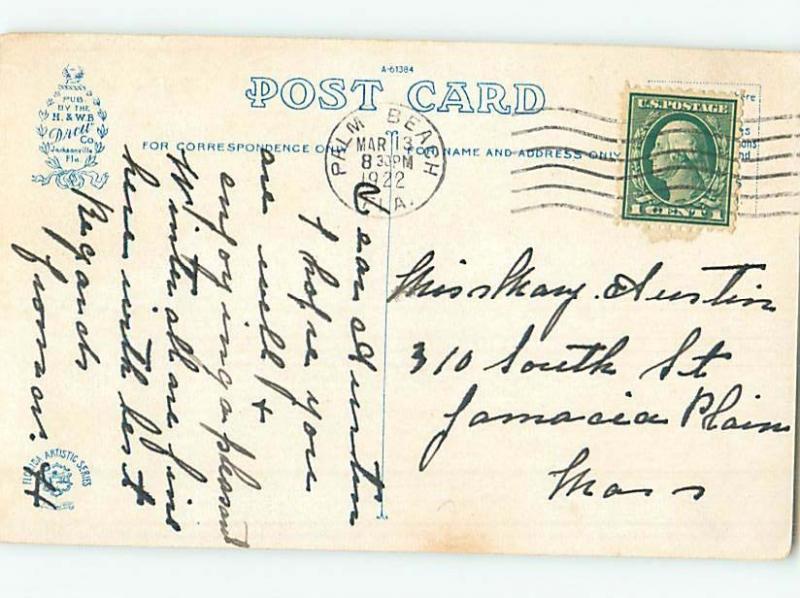 A-61384
POST CARD
PUB.
BY THE
H. & W.B.
DREW
CO.
Jacksonville
Fla.
FOR CORRESPONDENCE ONLY
FOR NAME AND ADDRESS ONLY
PALM BEACH
MAR 13
8 30 PM
1922
FLA.
U.S. POSTAGE
1 CENT 1
Dear
I hope you
are well &
enjoying a pleasant
Winter all are fine
here with best
Regards
from
Miss Mary Austin
310 South St
Jamacia Plain
Mass
FLORIDA ARTISTIC SERIES